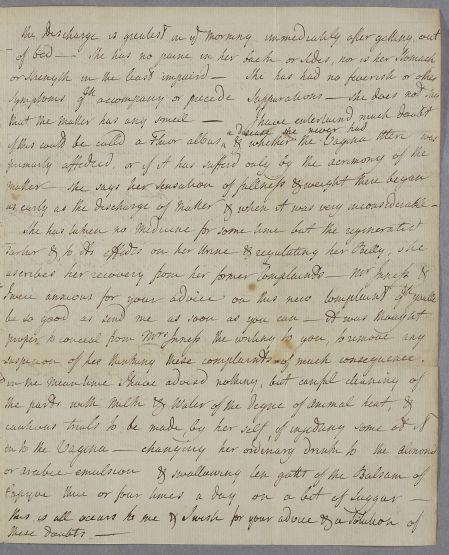 the discharge is greatest in yᵉ morning immediately after getting out
of bed — She has no paine in her back or sides, nor is her Stomach
or Strength in the least impaired — She has had no feverish or other
Symptoms qᶜʰ accompany or precede Suppurations — She does not say
that the matter has any smell — I have entertaind much doubt
if this would be calld a Fluor albus, a disease she never had & whether the Vagina there was
primarly affected, or if it has sufferd only by the acrimony of the
matter she says her sensation of fullness & weight there began
as early as the discharge of matter & when it was very inconsiderable —
She has taken no medicine for some time but the regenerated
Tartar & to its effects on her Urine & regulating her Belly, she
ascribes her recovery from her former Complaints — Mr Inness &
I were anxious for your advice on this new complaint qᶜʰ you'll
be so good as send me as soon as you can — It was thought
proper to conceal from Mrs Inness the writing to you, to remove any
suspicion of her thinking these complaints of much consequence.
in the mean time I have advised nothing, but carefull cleaning of
the parts with Milk & Water of the degree of animal heat, &
cautious trials to be made by her self of injecting some of it
into the Vagina — changing her ordinary drink to the almond
or arabic emulsion & swallowing ten gutts of the Balsam of
three or four times a day on a bit of Suggar —
this is all occurs to me & I wish for your advice & a solution of
these doubts —